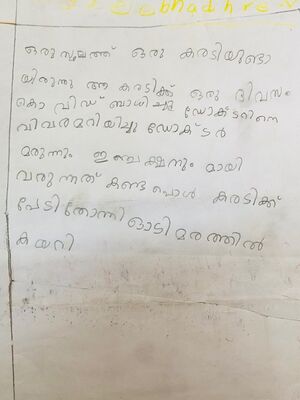 bhadhre
ഒരു സ്ഥലത്ത് ഒരു കരടിയുണ്ടാ
യിരുന്നു ആ കരടിക്ക് ഒരു ദിവസം
കൊവിഡ് ബാധിച്ചു ഡോക്ടറിനെ
വിവരമറിയിച്ചു ഡോക്ടർ
മരുന്നും ഇഞ്ചക്ഷനും മായി
വരുന്നത് കണ്ടപൊൾ കരടിക്ക്
പേടിതോന്നി ഓടി മരത്തിൽ
കയറി